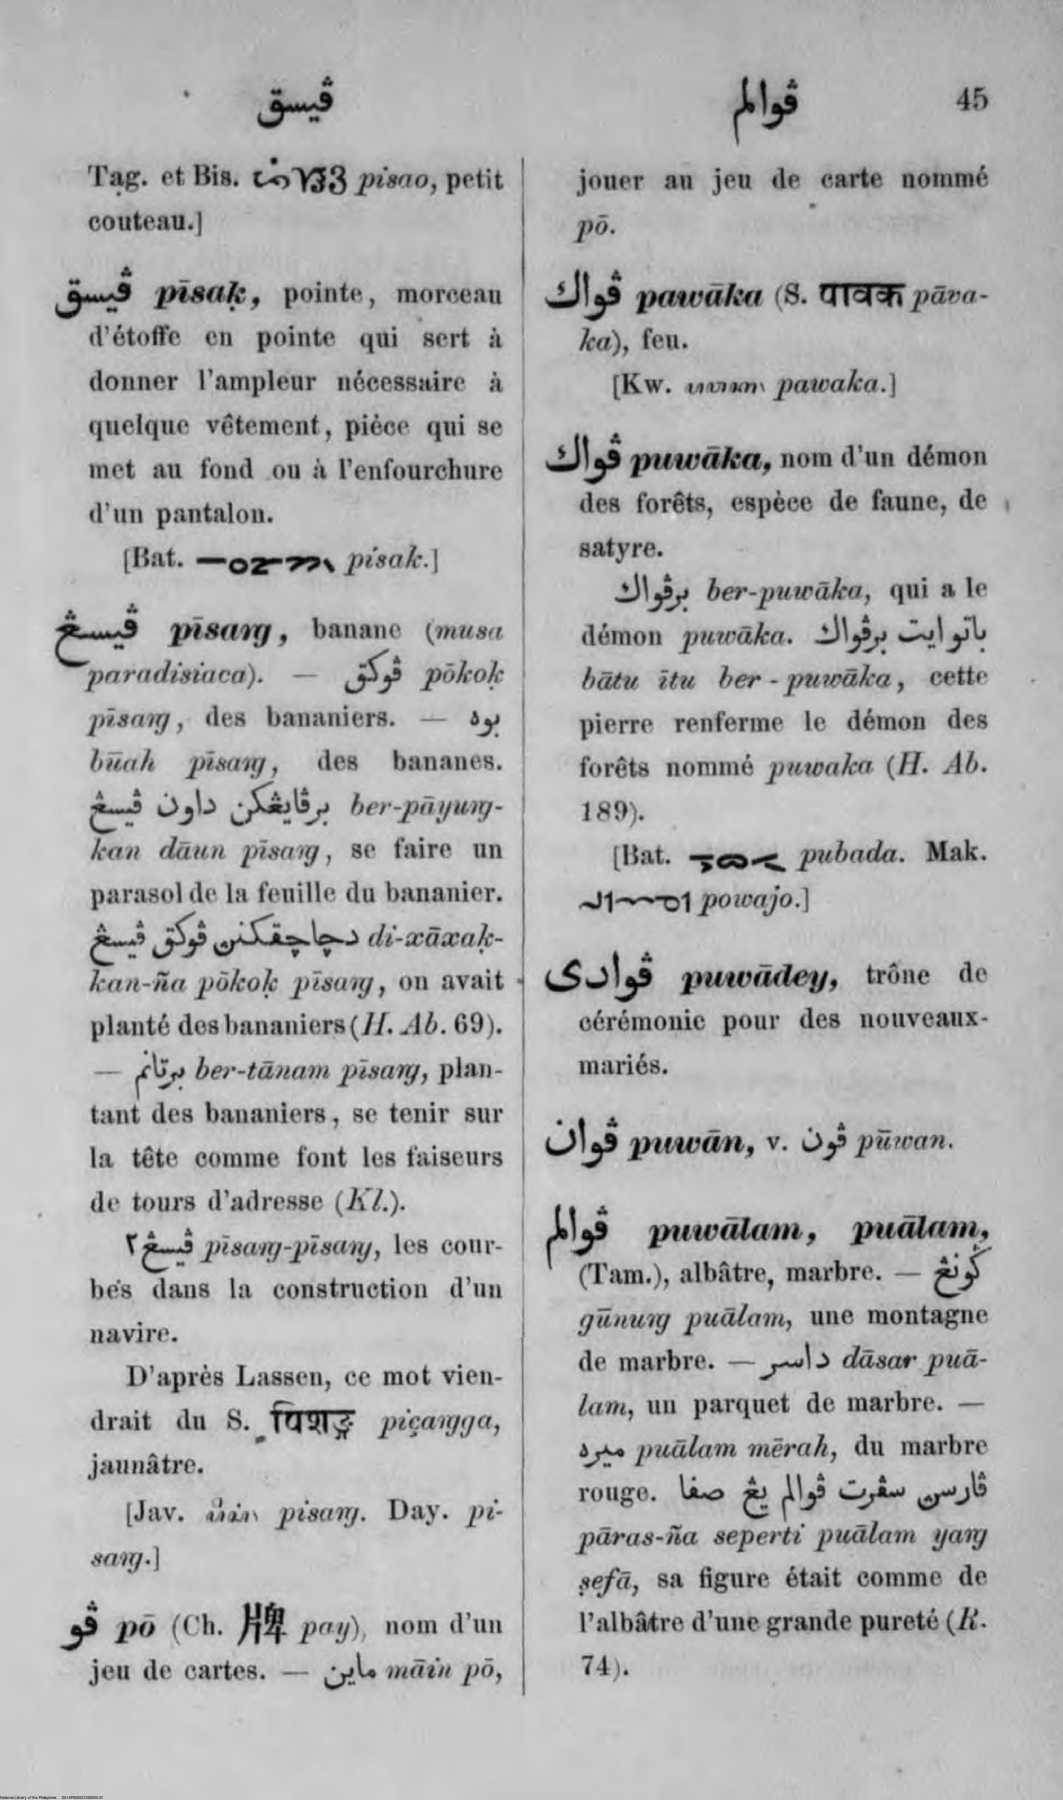 ڤيسق
ڤوالم 45
Tag. et Bis. pisao, petit
couteau.]
ڤيسق pīsaḳ, pointe, morceau
d'étoffe en pointe qui sert à
donner l'ampleur nécessaire à
quelque vêtement, pièce qui se
met au fond ou à l'enfourchure
d'un pantalon.
[Bat. pisak.]
ڤيسڠ pīsaŋ, banane (musa
paradisiaca). — ڤوكق pōkoḳ
pīsaŋ, des bananiers. — بوه
būah pīsaŋ, des bananes.
برڤايڠكن داون ڤيسڠ ber-pāyuŋ-
kan dāun pīsaŋ, se faire un
parasol de la feuille du bananier.
دچاچقكنن ڤوكق ڤيسڠ di-xāxaḳ-
kan-ña pōkoḳ pīsaŋ, on avait
planté des bananiers (H. Ab. 69).
— برتانم ber-tānam pīsaŋ, plan-
tant des bananiers, se tenir sur
la tête comme font les faiseurs
de tours d'adresse (Kl.).
ڤيسڠ٢ pīsaŋ-pīsaŋ, les cour-
bes dans la construction d'un
navire.
D'après Lassen, ce mot vien-
drait du S. पिशङ्ग piçaŋga,
jaunâtre.
[Jav. pisaŋ. Day. pi-
saŋ.]
ڤو pō (Ch. 牌 pay), nom d'un
jeu de cartes. — ماين māin pō,
jouer au jeu de carte nommé
pō.
ڤواك pawāka (S. पावक pāva-
ka), feu.
[Kw. pawaka.]
ڤواك puwāka, nom d'un démon
des forêts, espèce de faune, de
satyre.
برڤواك ber-puwāka, qui a le
démon puwāka. باتو ايت برڤواك
bātu ītu ber-puwāka, cette
pierre renferme le démon des
forêts nommé puwaka (H. Ab.
189).
[Bat. pubada. Mak.
powajo.]
ڤوادى puwādey, trône de
cérémonie pour des nouveaux-
mariés.
ڤوان puwān, v. ڤون pūwan.
ڤوالم puwālam, puālam,
(Tam.), albâtre, marbre. — ݢونڠ
gūnuŋ puālam, une montagne
de marbre. — داسر dāsar puā-
lam, un parquet de marbre. —
ميره puālam mērah, du marbre
rouge. ڤارسن سڤرت ڤوالم يڠ صفا
pāras-ña seperti puālam yaŋ
ṣefā, sa figure était comme de
l'albâtre d'une grande pureté (R.
74).